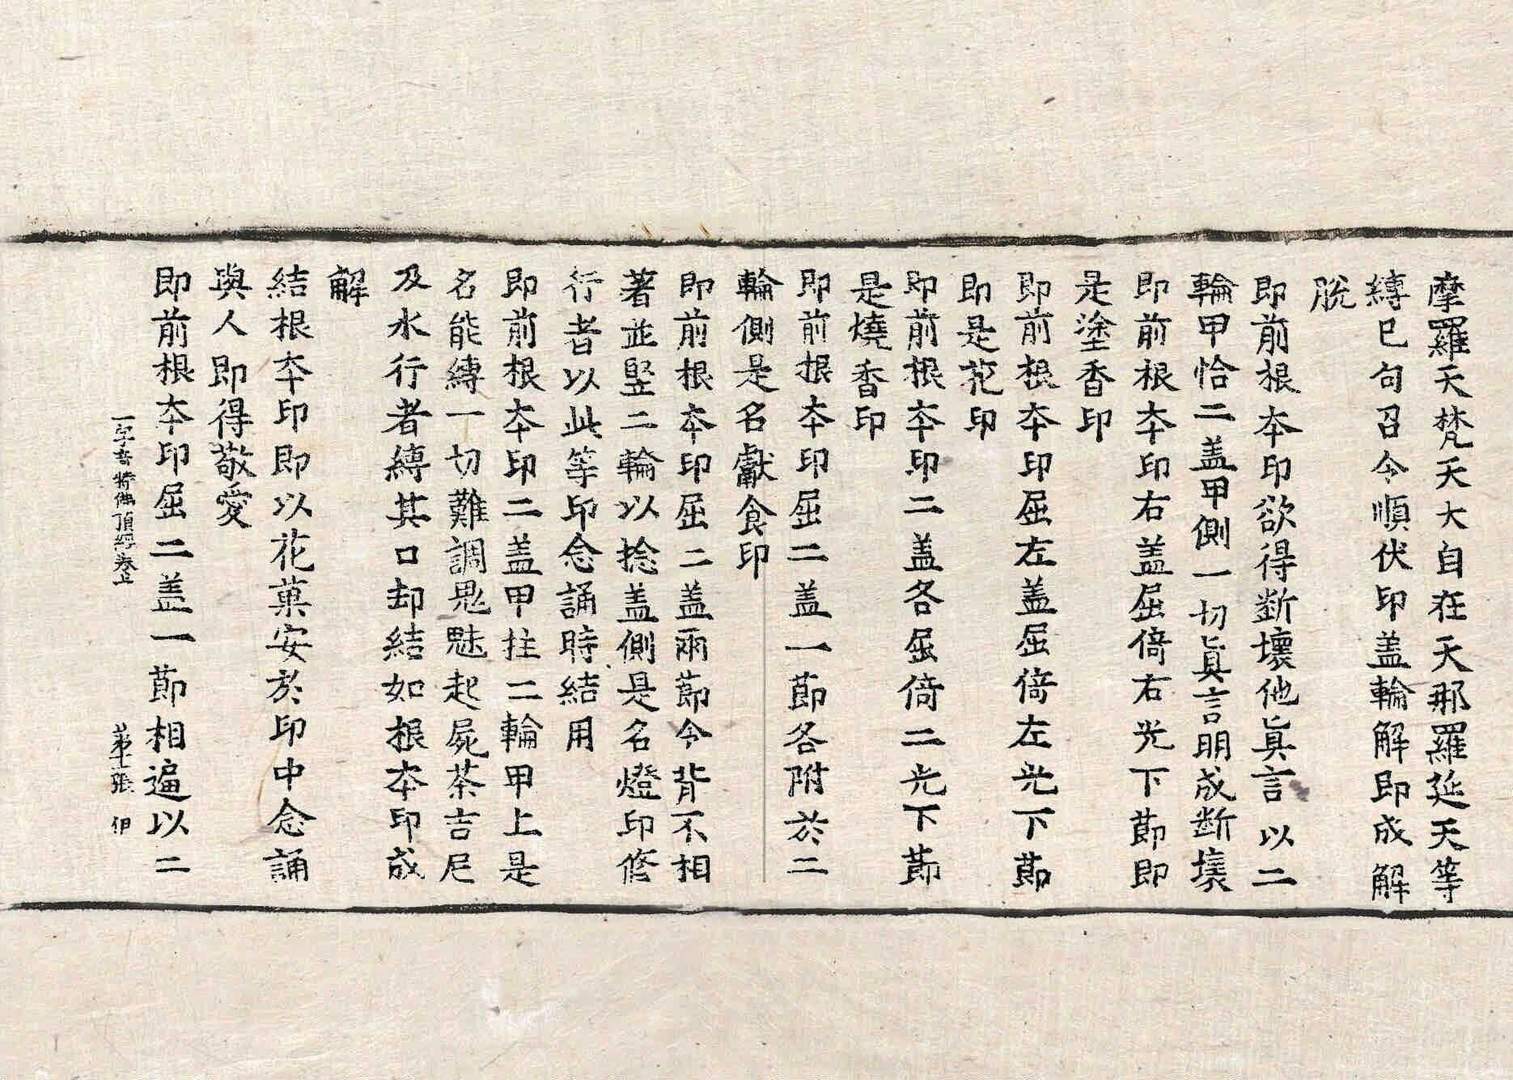 摩羅天梵天大自在天那羅延天等
縛已句召令順伏印盖輪解即成解
脫
即前根本印欲得斷壞他眞言以二
輪甲恰二盖甲側一切眞言明成斷壞
即前根本印右盖屈倚右光下莭即
是塗香印
即前根本印屈左盖屈倚左光下莭
即是花印
即前根本印二盖各屈倚二光下莭
是燒香印
即前根本印屈二盖一莭各附於二
輪側是名獻食印
即前根本印屈二盖兩莭令背不相
著並竪二輪以捻盖側是名燈印修
行者以此等印念誦時結用
即前根本印二盖甲拄二輪甲上是
名能縛一切難調鬼魅起屍茶吉尼
及水行者縛其口却結如根本印成
解
結根本印即以花菓安於印中念誦
與人即得敬愛
即前根本印屈二盖一莭相逼以二
一字奇特佛頂經卷上 第七張 伊